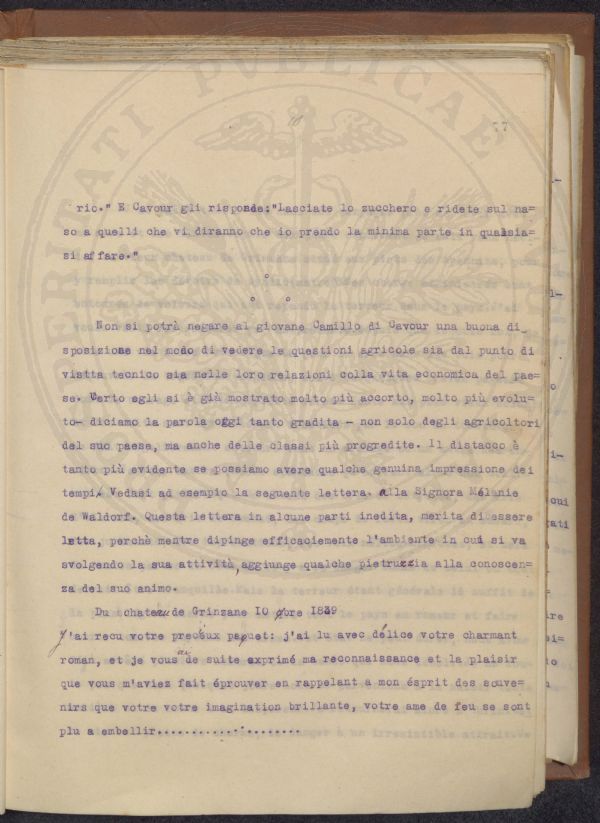 10
77
rio." E Cavour gli risponde:"Lasciate lo zucchero e ridete sul na=
so a quelli che vi diranno che io prendo la minima parte in qualsia=
si affare."
° 
° °
Non si potrà negare al giovane Camillo di Cavour una buona di_
sposizione nel modo di vedere le questioni agricole sia dal punto di
vistta tecnico sia nelle loro relazioni colla vita economica del pae=
se. Certo egli si è già mostrato molto più accorto, molto più evolu=
to- diciamo la parola oggi tanto gradita - non solo degli agricoltori
del suo paese, ma anche delle classi più progredite. Il distacco è
tanto più evidente se possiamo avere qualche genuina impressione dei
tempi. Vedasi ad esempio la seguente lettera alla Signora Mélanie
de Waldorf. Questa lettera in alcune parti inedita, merita di essere
letta, perchè mentre dipinge efficaciemente l'ambiente in cui si va
svolgendo la sua attività, aggiunge qualche pietruzzia alla conoscen=
za del suo animo.
Du chateau de Grinzane IO 9bre 1839
J'ai recu votre precéux paquet: j'ai lu avec délice votre charmant
roman, et je vous ai de suite exprimé ma reconnaissance et la plaisir
que vous m'aviez fait éprouver en rappelant a mon ésprit des souve=
nirs que votre votre imagination brillante, votre ame de feu se sont
plu a embellir......................
PVBLICAE